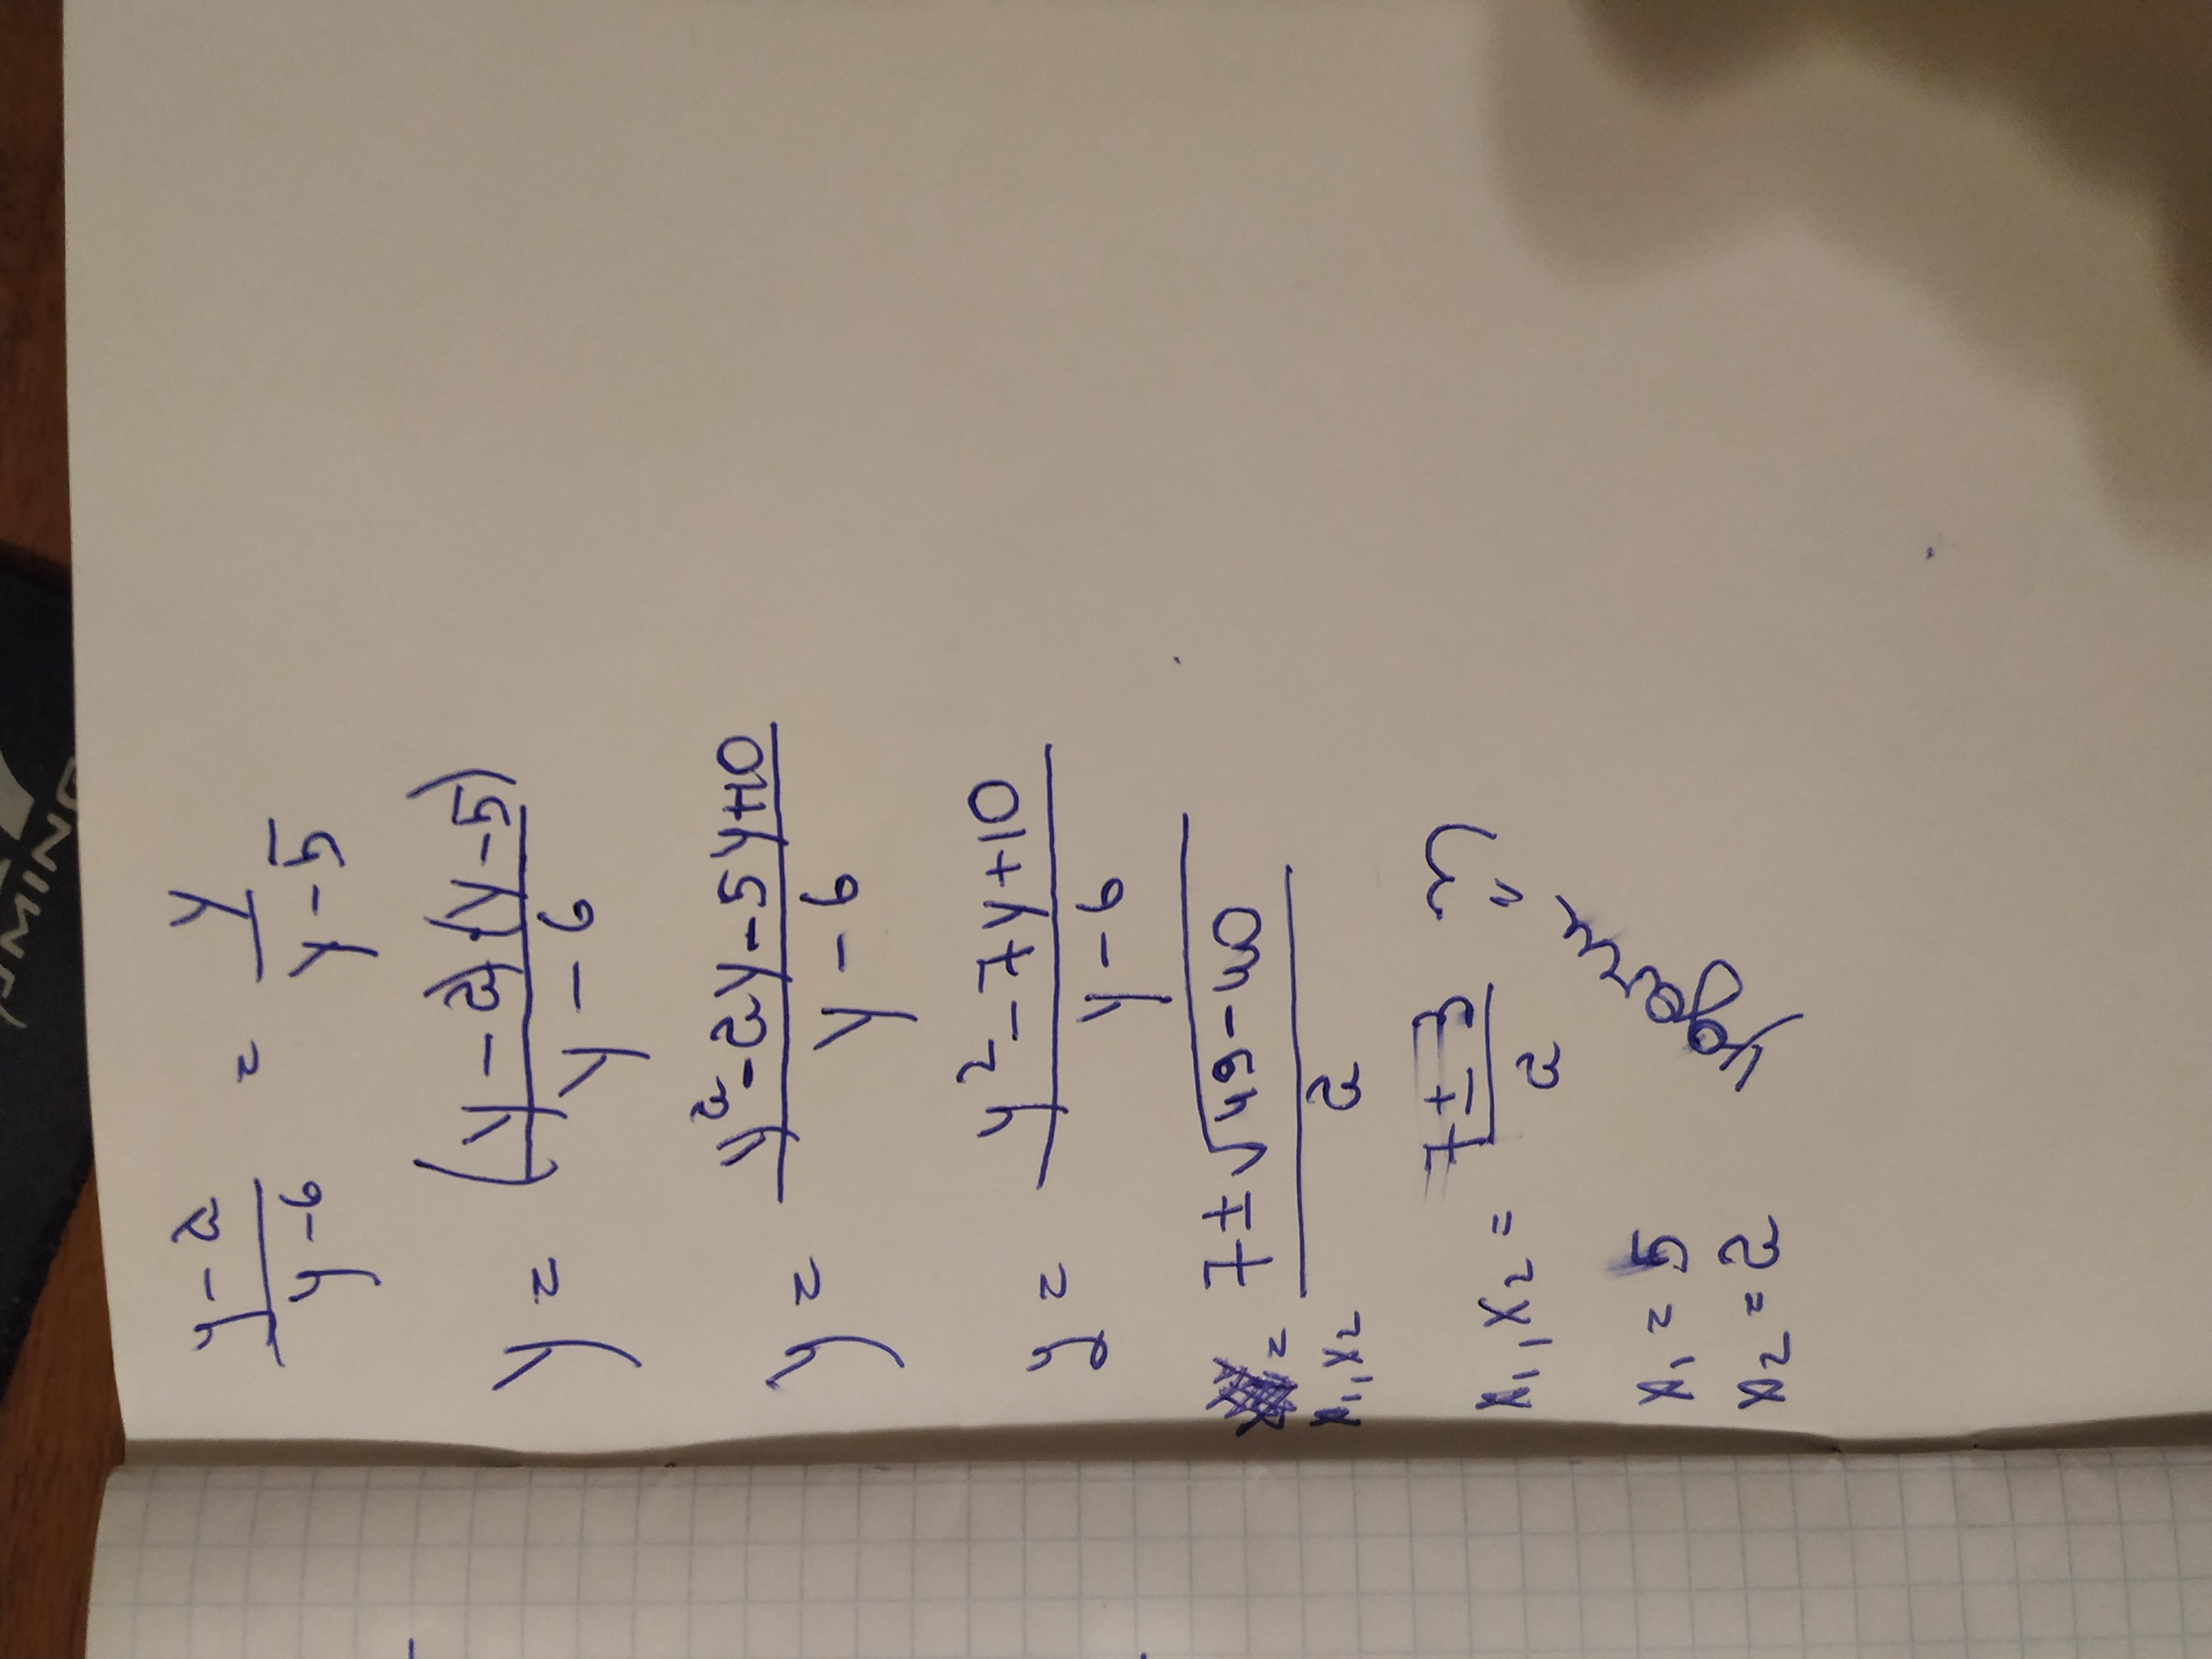 y-2/y-6 = y/y-5
y = (y-2)·(y-5)/y-6
y = y²-2y-5y+10/y-6
y = y²-7y+10/y-6
x₁,x₂ = 7±√49-40/2
x₁,x₂ = 7±3/2
x₁ = 5
x₂ = 2